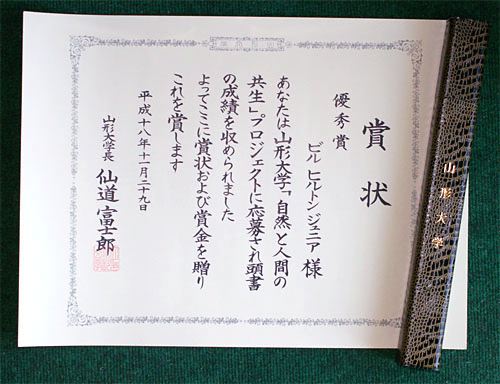 賞状
優秀賞
ビル ヒルトン ジュニア 様
あなたは山形大学「自然と人間の
共生」プロジェクトに応募され頭書
の成績を収められました
よってここに賞状および賞金を贈り
これを賞します
平成十八年十一月二十九日
山形大学長 仙道富士郎
山形大学